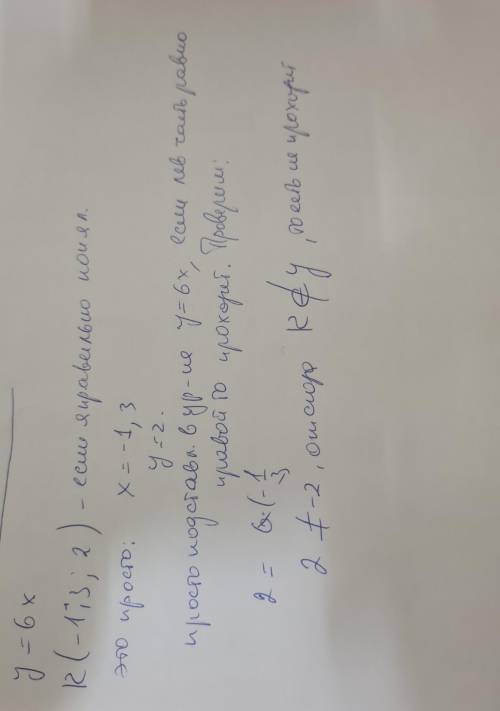 y = 6x
K(-1,3; 2) - если я правильно понял.
это просто: x = -1,3
y = 2.
просто подставл. в ур-ие y = 6x, если лев часть равно
правой то проходит. Проверим:
2 = 6·(-1/3
2 ≠ -2, отсюда K ∉ y, то есть не проходит